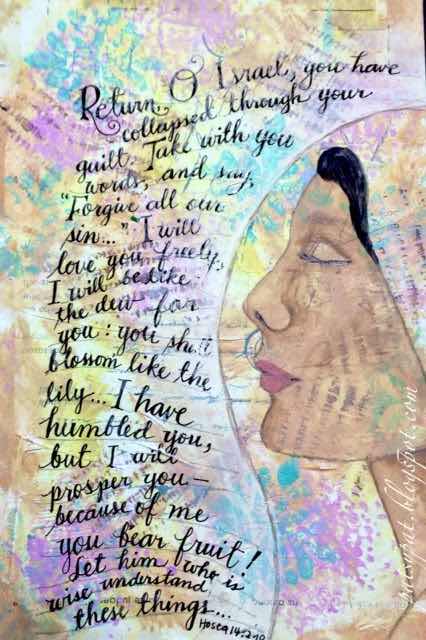 Return, O Israel, you have
collapsed through your
guilt. Take with you
words, and say,
"Forgive all our
sin..." I will
love you freely;
I will be like
the dew for
you: you shall
blossom like the
lily... I have
humbled you,
but I will
prosper you —
because of me
you bear fruit!
Let him who is
wise understand
these things...
Hosea 14:2-10
.blogspot.com